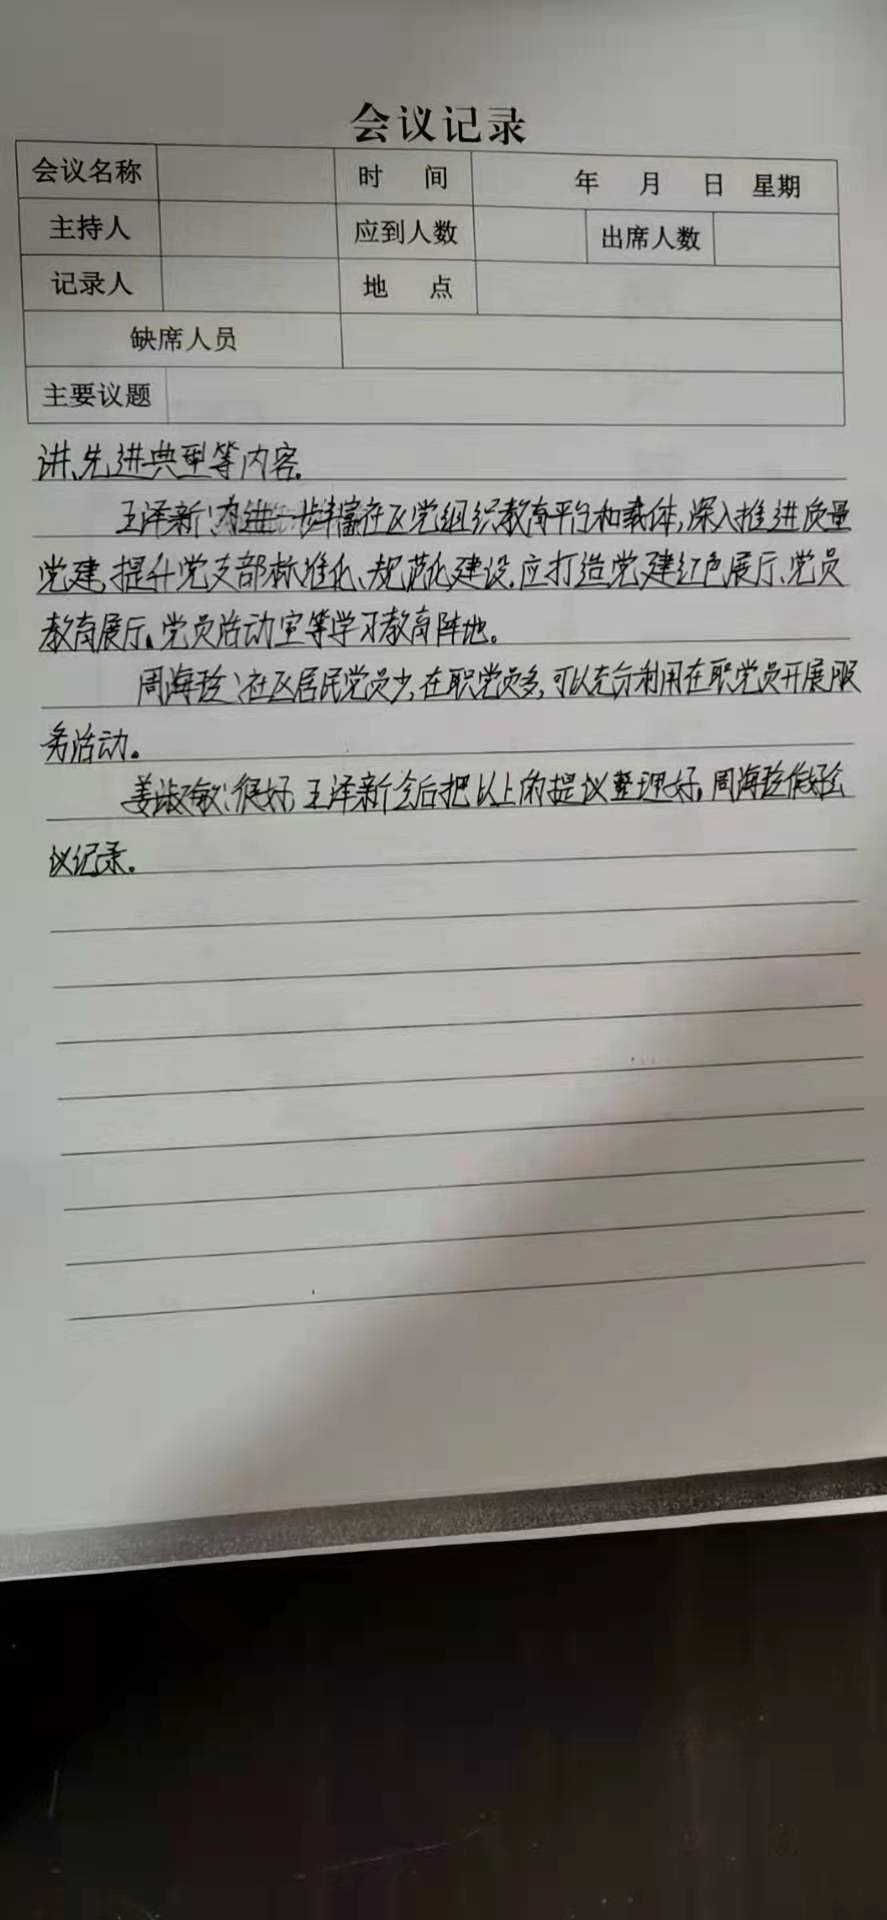 会议记录
会议名称 时 间 年 月 日 星期
主持人 应到人数 出席人数
记录人 地 点
缺席人员
主要议题
讲、先进典型等内容.
王泽新:为进一步丰富社区党组织教育平台和载体,深入推进质量
党建,提升党支部标准化、规范化建设.应打造党建红色展厅、党员
教育展厅、党员活动室等学习教育阵地。
周海珍:社区居民党员少,在职党员多,可以充分利用在职党员开展服
务活动。
姜淑敏:很好,王泽新会后把以上的提议整理好,周海珍做好会
议记录.